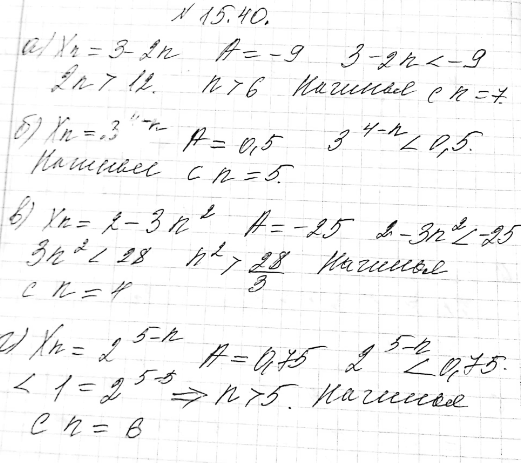 № 15.40.
а) Xn = 3-2n A = -9 3-2n < -9
2n > 12. n > 6 Начиная с n = 7.
б) Xn = 3^4-n A = 0,5 3^4-n < 0,5.
Начиная с n = 5.
в) Xn = 2-3n² A = -25 2-3n² < -25
3n² < 28 n² > 28/3 Начиная
с n = 4
г) Xn = 2^5-n A = 0,75 2^5-n < 0,75.
< 1 = 2^5-5 ⇒ n > 5. Начиная
с n = 6